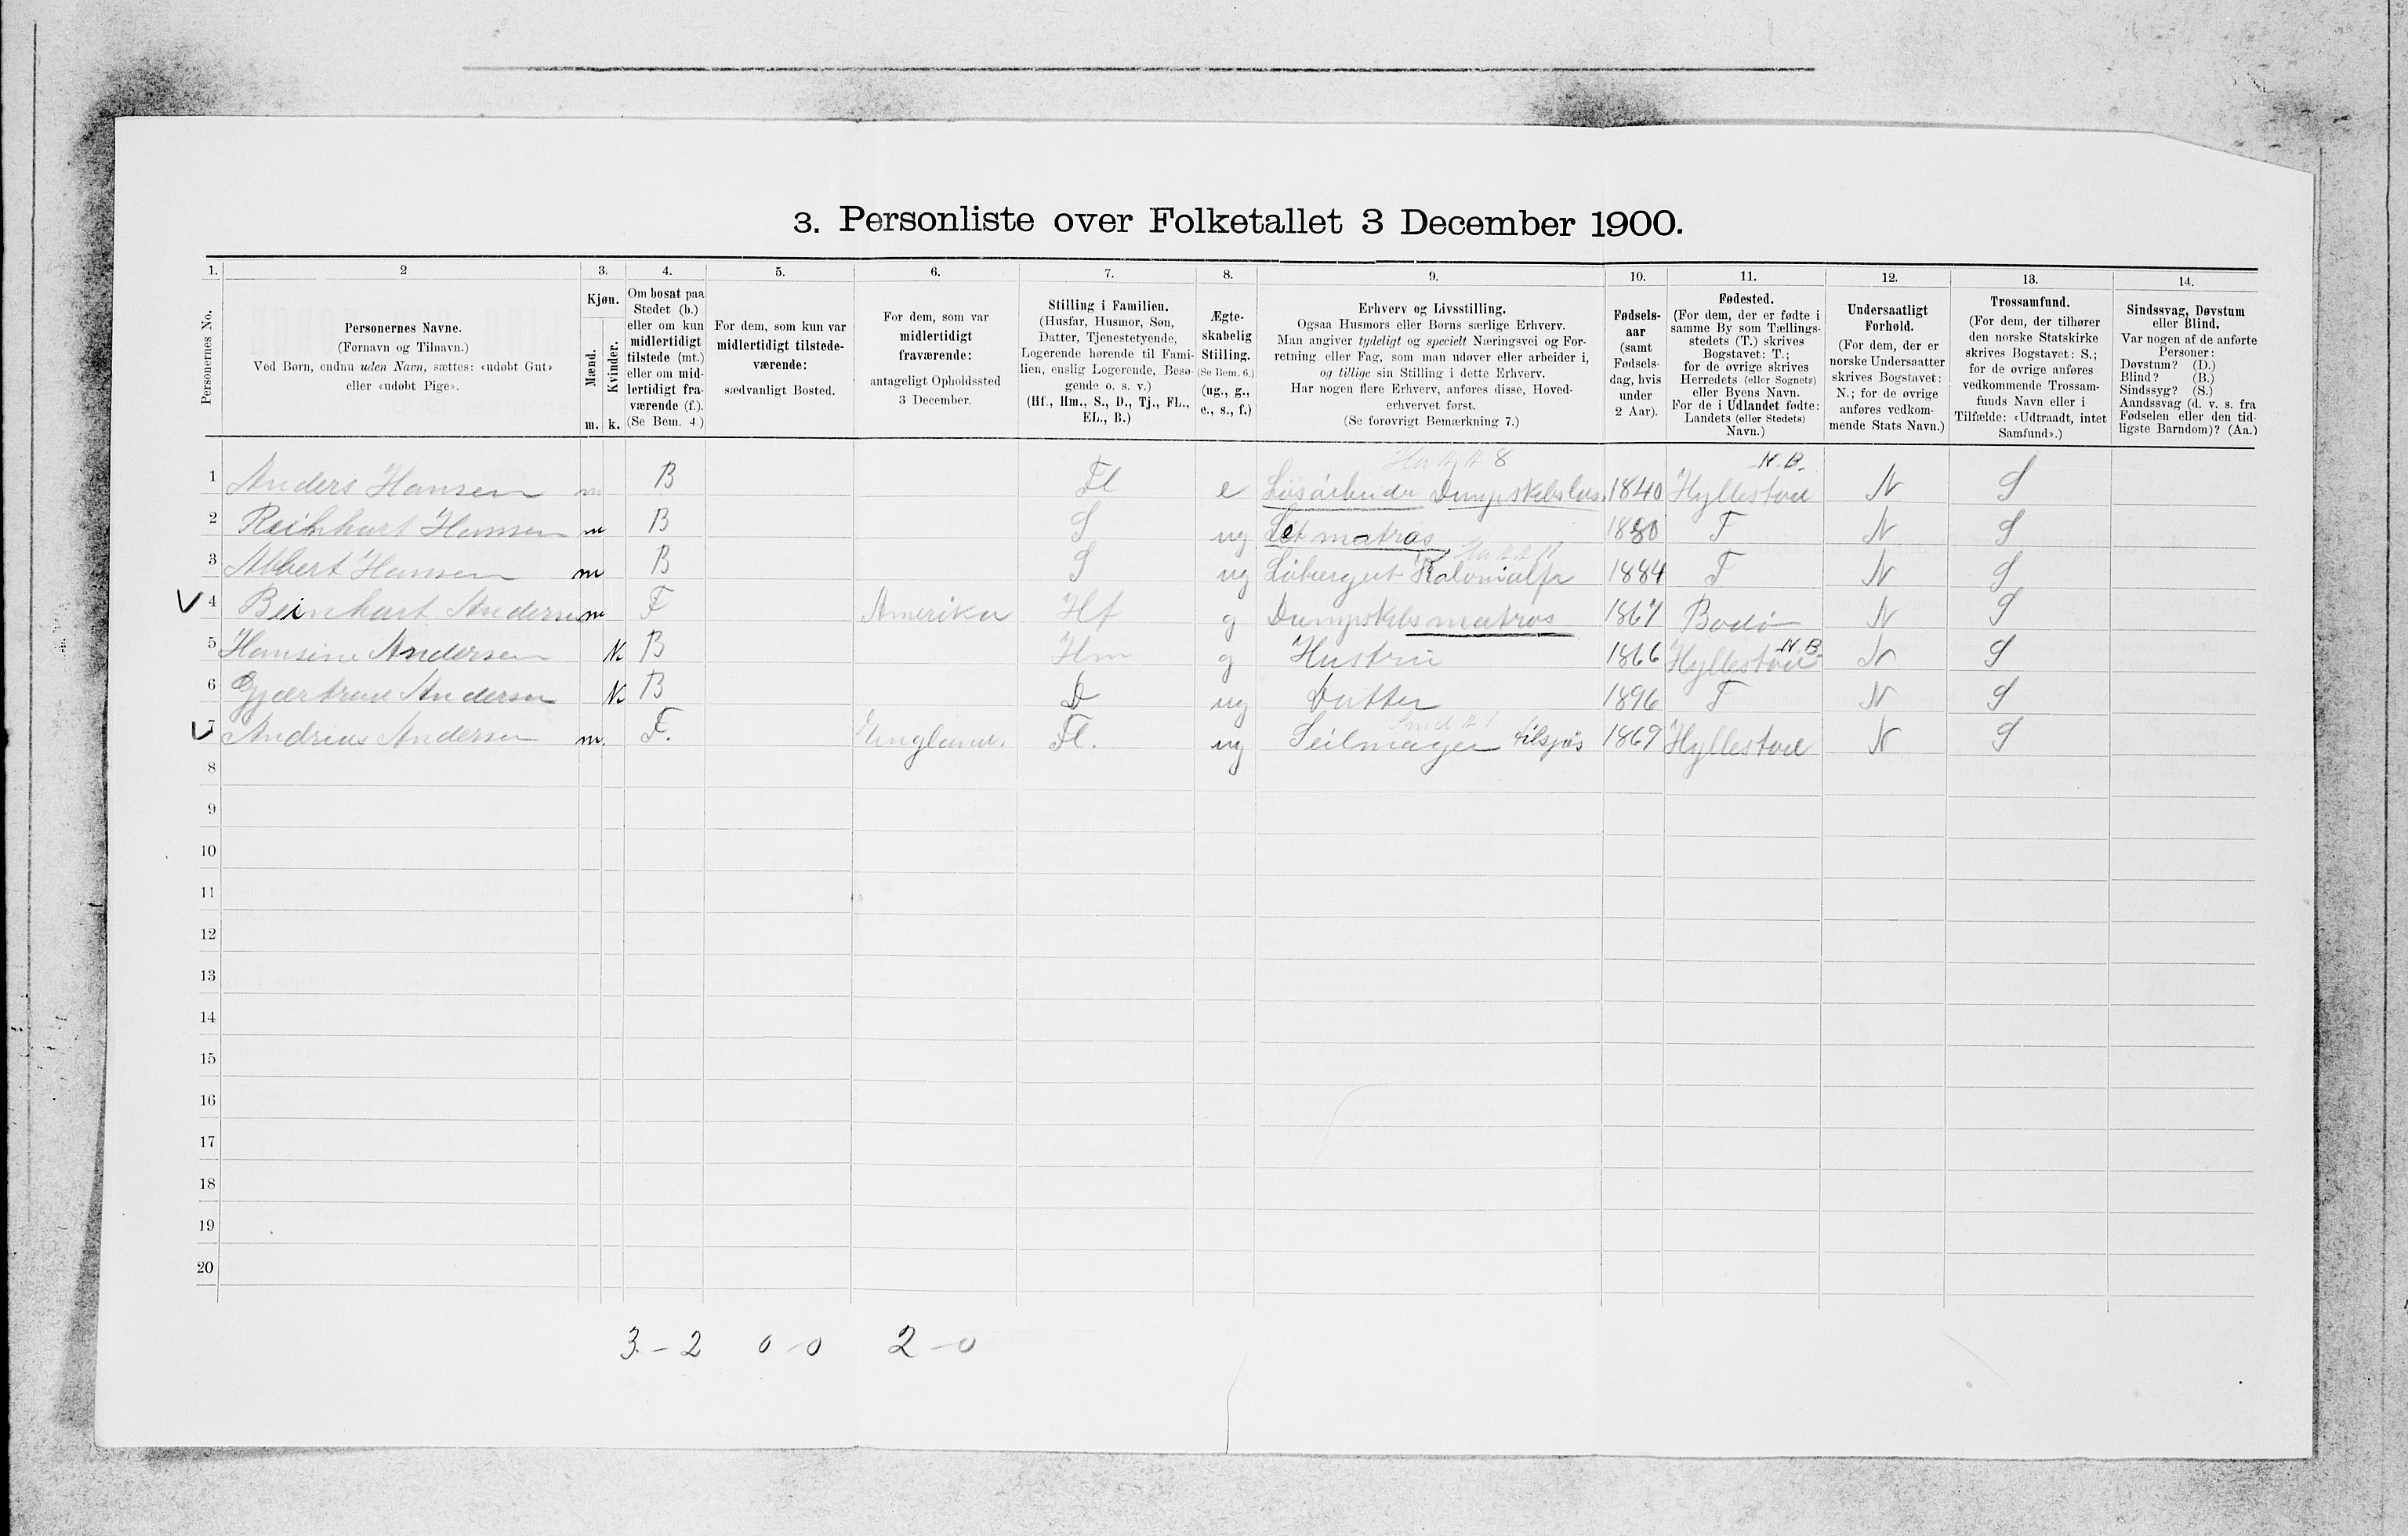 3. Personliste over Folketallet 3 December 1900.
1. 2 3. 4. 5. 6. 7. 8. 9. 10. 11. 12. 13. 14.
Personernes No.
Personernes Navne.
(Fornavn og Tilnavn.)
Ved Børn, endnu uden Navn, sættes: «udøbt Gut»
eller «udøbt Pige».
Kjøn.
Mænd. Kvinder.
m. k.
Om bosat paa
Stedet (b.)
eller om kun
midlertidigt
tilstede (mt.)
eller om mid-
lertidigt fra-
værende (f.).
(Se Bem. 4.)
For dem, som kun var
midlertidigt tilstede-
værende:
sædvanligt Bosted.
For dem, som var
midlertidigt
fraværende:
antageligt Opholdssted
3 December.
Stilling i Familien.
(Husfar, Husmor, Søn,
Datter, Tjenestetyende,
Logerende hørende til Fami-
lien, enslig Logerende, Besø-
gende o. s. v.)
(Hf., Hm., S., D., Tj., FL.,
EL., B.)
Ægte-
skabelig
Stilling.
(Se Bem. 6.)
(ug., g.,
e., s., f.)
Erhverv og Livsstilling.
Ogsaa Husmors eller Børns særlige Erhverv.
Man angiver tydeligt og specielt Næringsvei og For-
retning eller Fag, som man udøver eller arbeider i,
og tillige sin Stilling i dette Erhverv.
Har nogen flere Erhverv, anføres disse, Hoved-
erhvervet først.
(Se forøvrigt Bemærkning 7.)
Fødsels-
aar
(samt
Fødsels-
dag, hvis
under
2 Aar).
Fødested.
(For dem, der er fødte i
samme By som Tællings-
stedets (T.) skrives
Bogstavet: T.;
for de øvrige skrives
Herredets (eller Sognets)
eller Byens Navn.
For de i Udlandet fødte:
Landets (eller Stedets)
Navn.)
Undersaatligt
Forhold.
(For dem, der er
norske Undersaatter
skrives Bogstavet:
N.; for de øvrige
anføres vedkom-
mende Stats Navn.)
Trossamfund.
(For dem, der tilhører
den norske Statskirke
skrives Bogstavet: S.;
for de øvrige anføres
vedkommende Trossam-
funds Navn eller i
Tilfælde: «Udtraadt, intet
Samfund».)
Sindssvag, Døvstum
eller Blind.
Var nogen af de anførte
Personer:
Døvstum? (D.)
Blind? (B.)
Sindssyg? (S.)
Aandssvag (d. v. s. fra
Fødselen eller den tid-
ligste Barndom)? (Aa.)
8 N.B.
1 Anders Hansen m B Fl e Løsarbeider 1840 Hyllestad N S
2 Reinhart Hansen m B S ug Let matros 1880 T N S
3 Albert Hansen m B S ug Løbergut Kolonialfr 1884 T N S
V 4 Beinhart Andersen m F Amerika Hf g Dampskibsmatros 1867 Bodø N S
N.B.
5 Hansine Andersen K B Hm g Hustru 1866 Hyllestad N S
6 Gjærtrud Andersen K B D ug Datter 1896 T N S
V 7 Andrias Andersen m. F. England. Fl. ug Seilmager tilsjøs 1869 Hyllestad N S
8
9
10
11
12
13
14
15
16
17
18
19
20
3 - 2 0 - 0 2 - 0